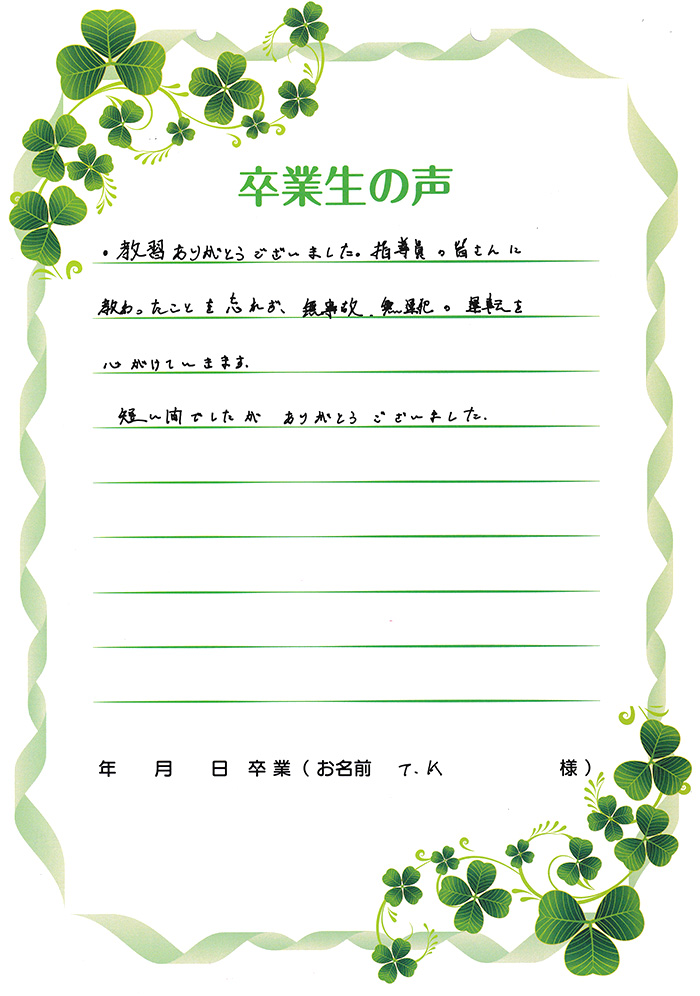 卒業生の声
・教習ありがとうございました。指導員の皆さんに
教わったことを忘れず、無事故.無違犯の運転を
心がけていきます.
短い間でしたが ありがとう ございました.
年 月 日 卒業(お名前 T.K 様)